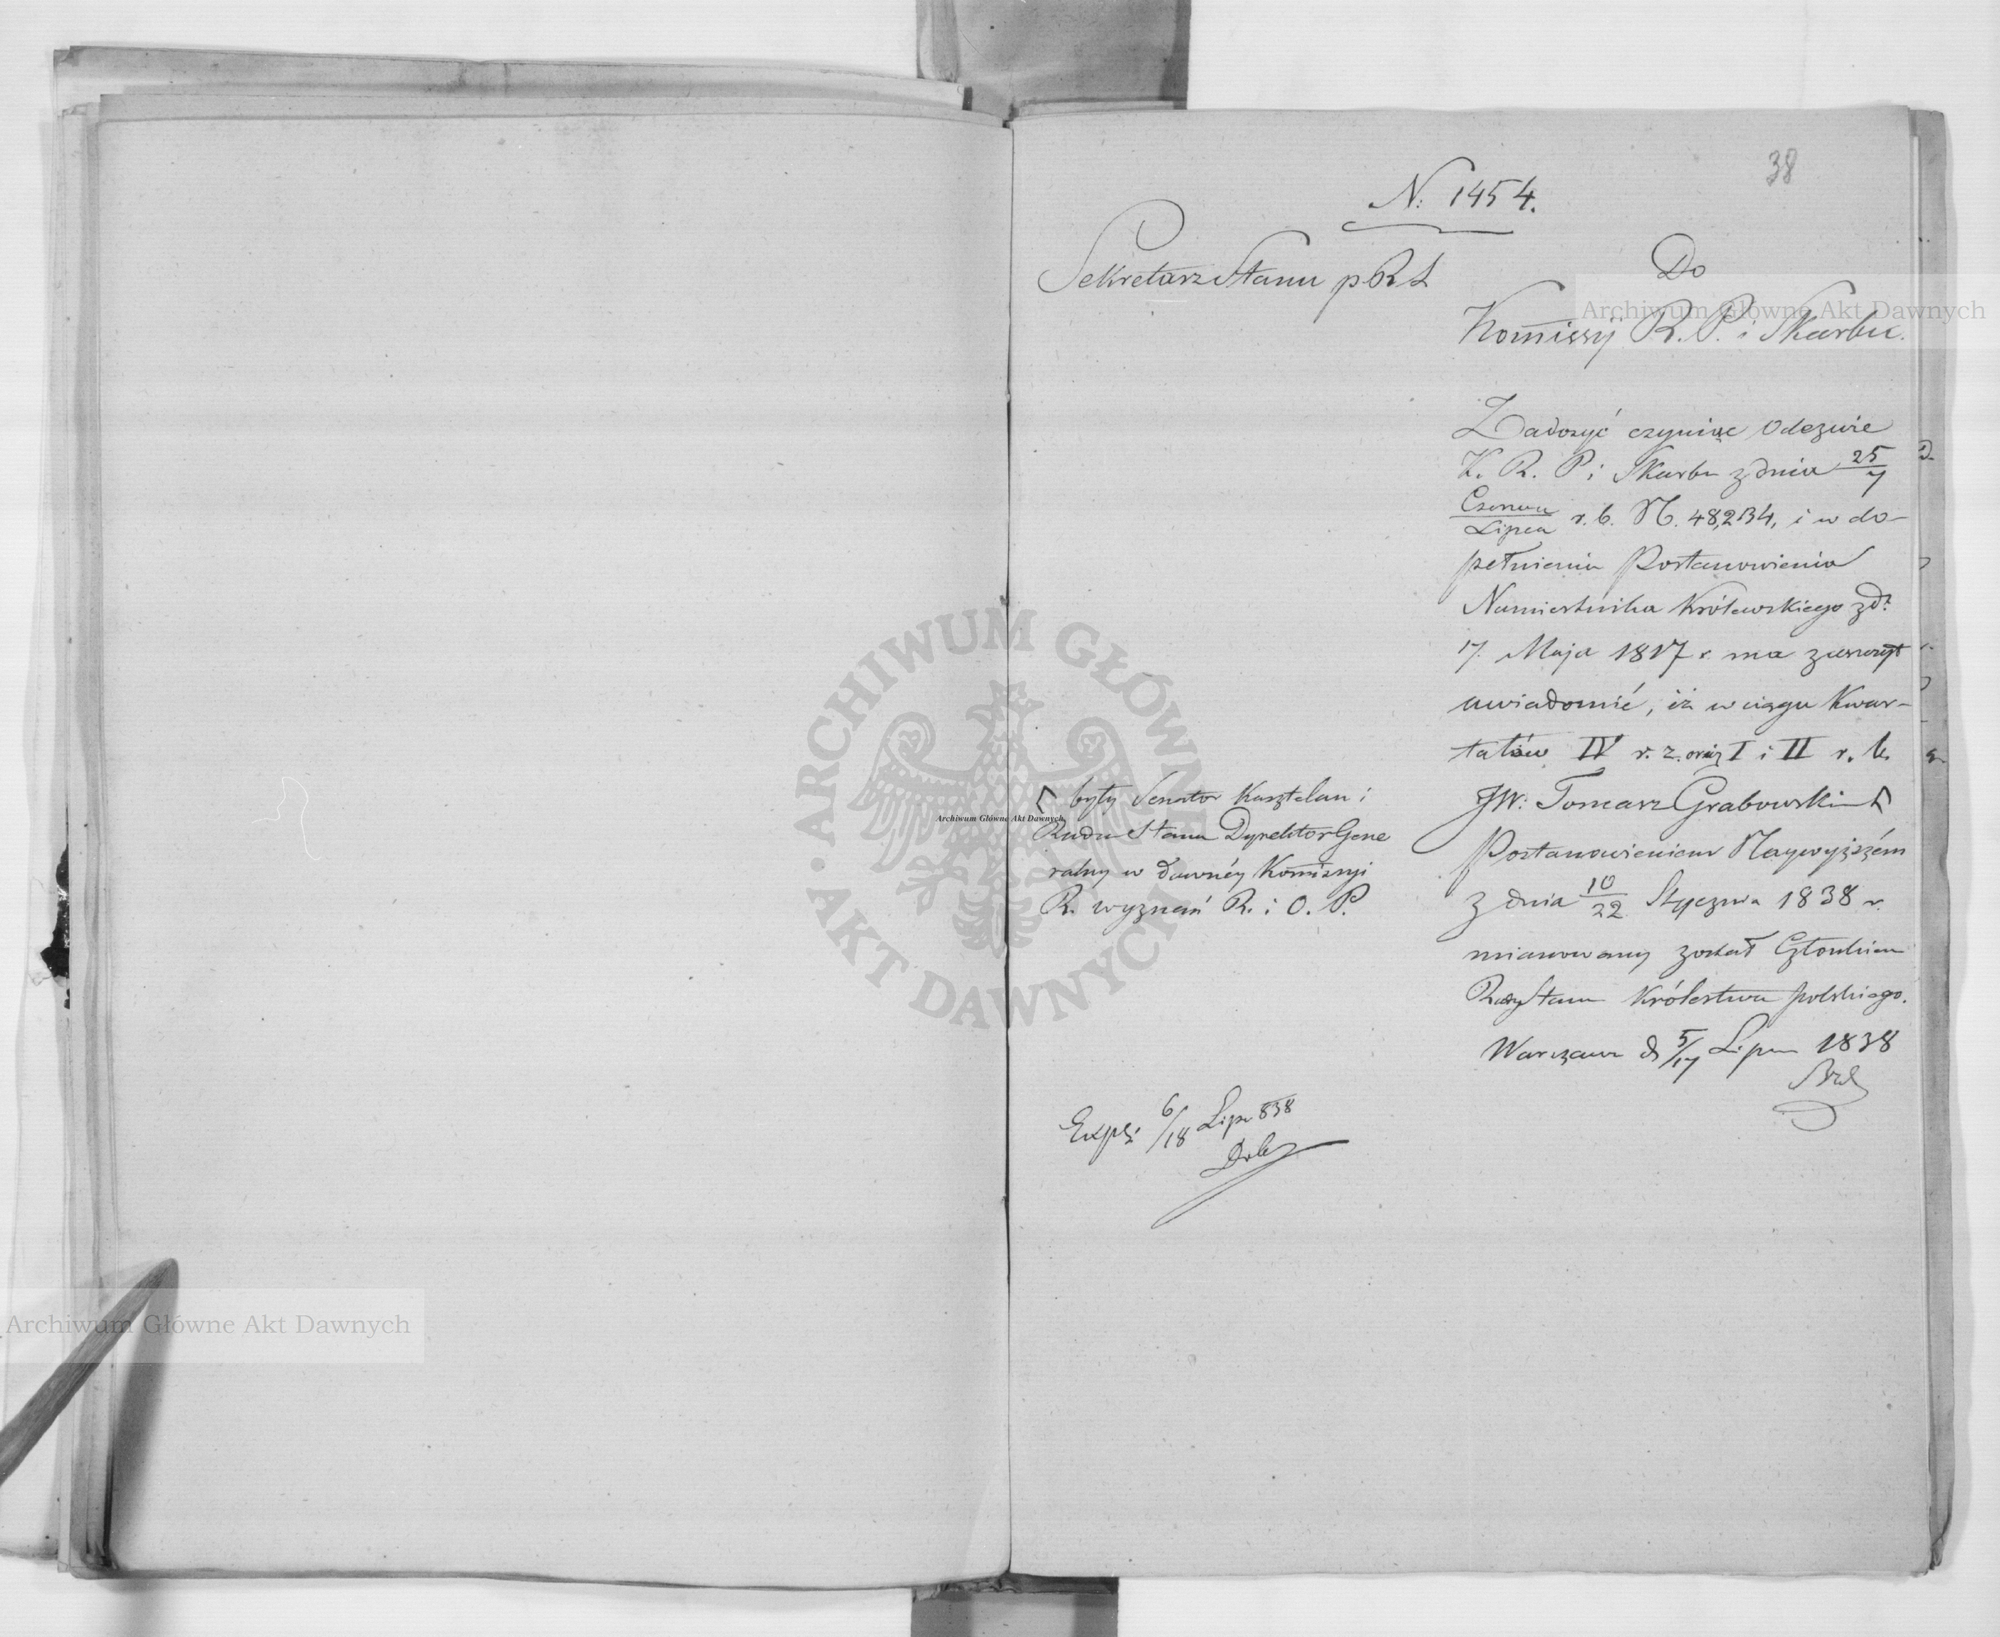 38
N: 1454.
Sekretarz Stanu p R S
Do
Kommissyi R. P. i Skarbu.
Zadosyć czyniąc Odezwie
K. R. P i Skarbu z dnia 25/7
Czerwca/Lipca r. b. N. 48,234, i w do-
pełnieniu Postanowienia
Namiestnika Królewskiego z d.
17. Maja 1817 r. ma zaszczyt
uwiadomić, iż w ciągu Kwar-
tałów IV r. z. oraz I i II r. b.
JW. Tomasz Grabowski
Postanowieniem Naywyższém
z dnia 10/22 Stycznia 1838 r.
mianowany został Członkiem
Rady Stanu Królestwa polskiego.
Warszawa d 5/17 Lipca 1838
były Senator Kasztelan i
Radca Stanu Dyrektor Gene
ralny w dawnéy Kommissyi
R. wyznań R. i O. P.
Exp: 6/18 Lipca 838
Archiwum Główne Akt Dawnych
Archiwum Główne Akt Dawnych
Archiwum Główne Akt Dawnych
ARCHIWUM GŁÓWNE AKT DAWNYCH